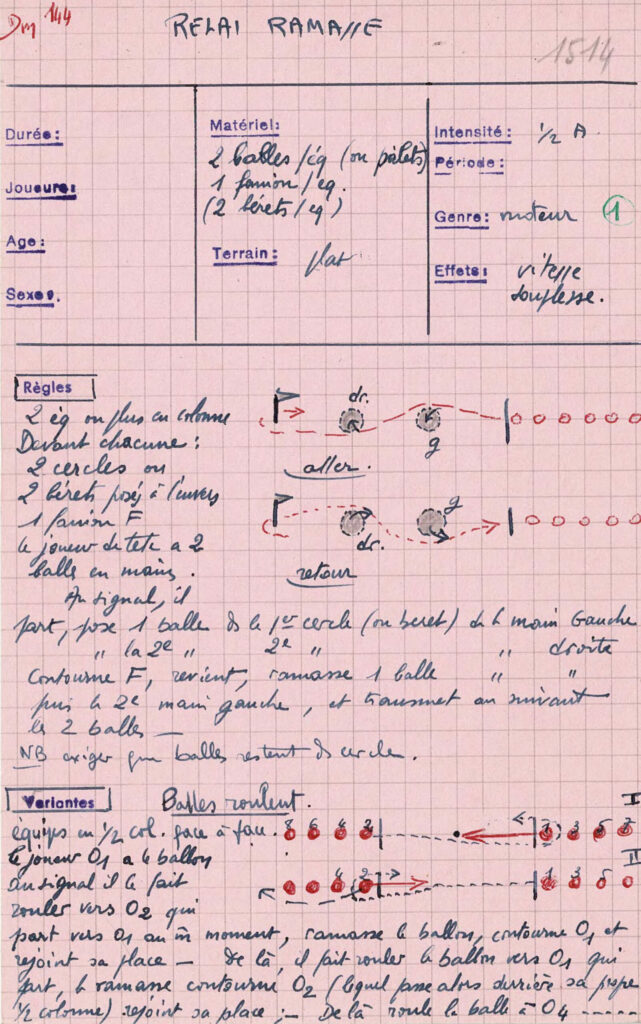 Dm 144
RELAI RAMASSE
1514
Durée:
Joueurs:
Age:
Sexe:
Matériel:
2 balles/éq (ou palets)
1 fanion/eq.
(2 bérets/eq)
Terrain: plat
Intensité: 1/2 A
Période:
Genre: moteur 1
Effets: vitesse
souplesse.
Règles
2 éq ou plus en colonne
Devant chacune:
2 cercles ou
2 bérets posés à l'envers
1 fanion F
le joueur de tete a 2
balle en mains.
Au signal, il
part, pose 1 balle ds le 1er cercle (ou beret) de la main Gauche
" la 2e " 2e " " droite
Contourne F, revient, ramasse 1 balle " "
puis la 2e main gauche, et transmet au suivant
les 2 balles —
NB exiger que balles restent ds cercle.
dr.
g
aller.
g
dr.
retour
Variantes
Balles roulent.
équipes en 1/2 col. face à face.
le joueur O1 a le ballon
au signal il le fait
rouler vers O2 qui
part vers O1 au m̄ moment, ramasse le ballon, contourne O1 et
rejoint sa place — De là, il fait rouler le ballon vers O1 qui
part, le ramasse contourne O2 (lequel passe alors derrière sa propre
1/2 colonne) rejoint sa place; — De là roule la balle à O4 -----
I
8 6 4 2 1 3 5 7
II
4 2 1 3 5